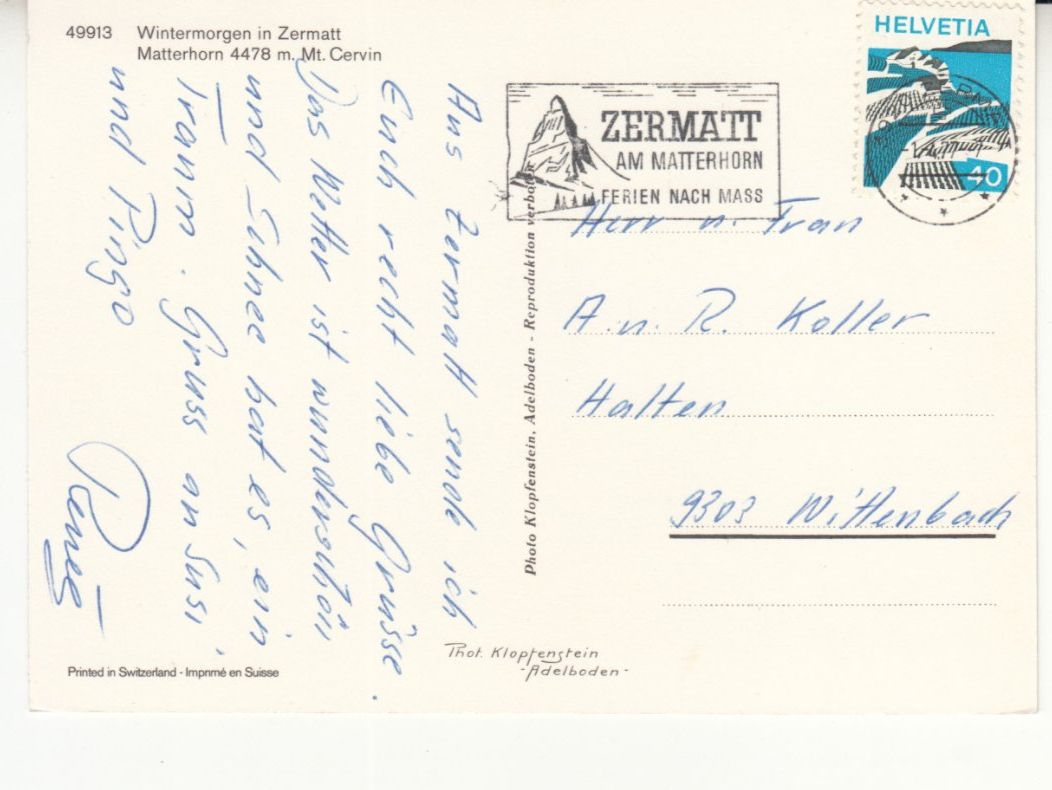 49913 Wintermorgen in Zermatt
Matterhorn 4478 m. Mt. Cervin
Aus Zermatt sende ich
Euch recht liebe Grüsse.
Das Wetter ist wunderschön
und Schnee hat es, ein
Traum. Gruss an Susi,
und Pingo
Renée
Printed in Switzerland - Imprimé en Suisse
Photo Klopfenstein, Adelboden - Reproduktion verboten
Phot. Klopfenstein
-Adelboden-
ZERMATT
AM MATTERHORN
FERIEN NACH MASS
HELVETIA
40
Herr u. Frau
A. u. R. Koller
Halten
9303 Wittenbach